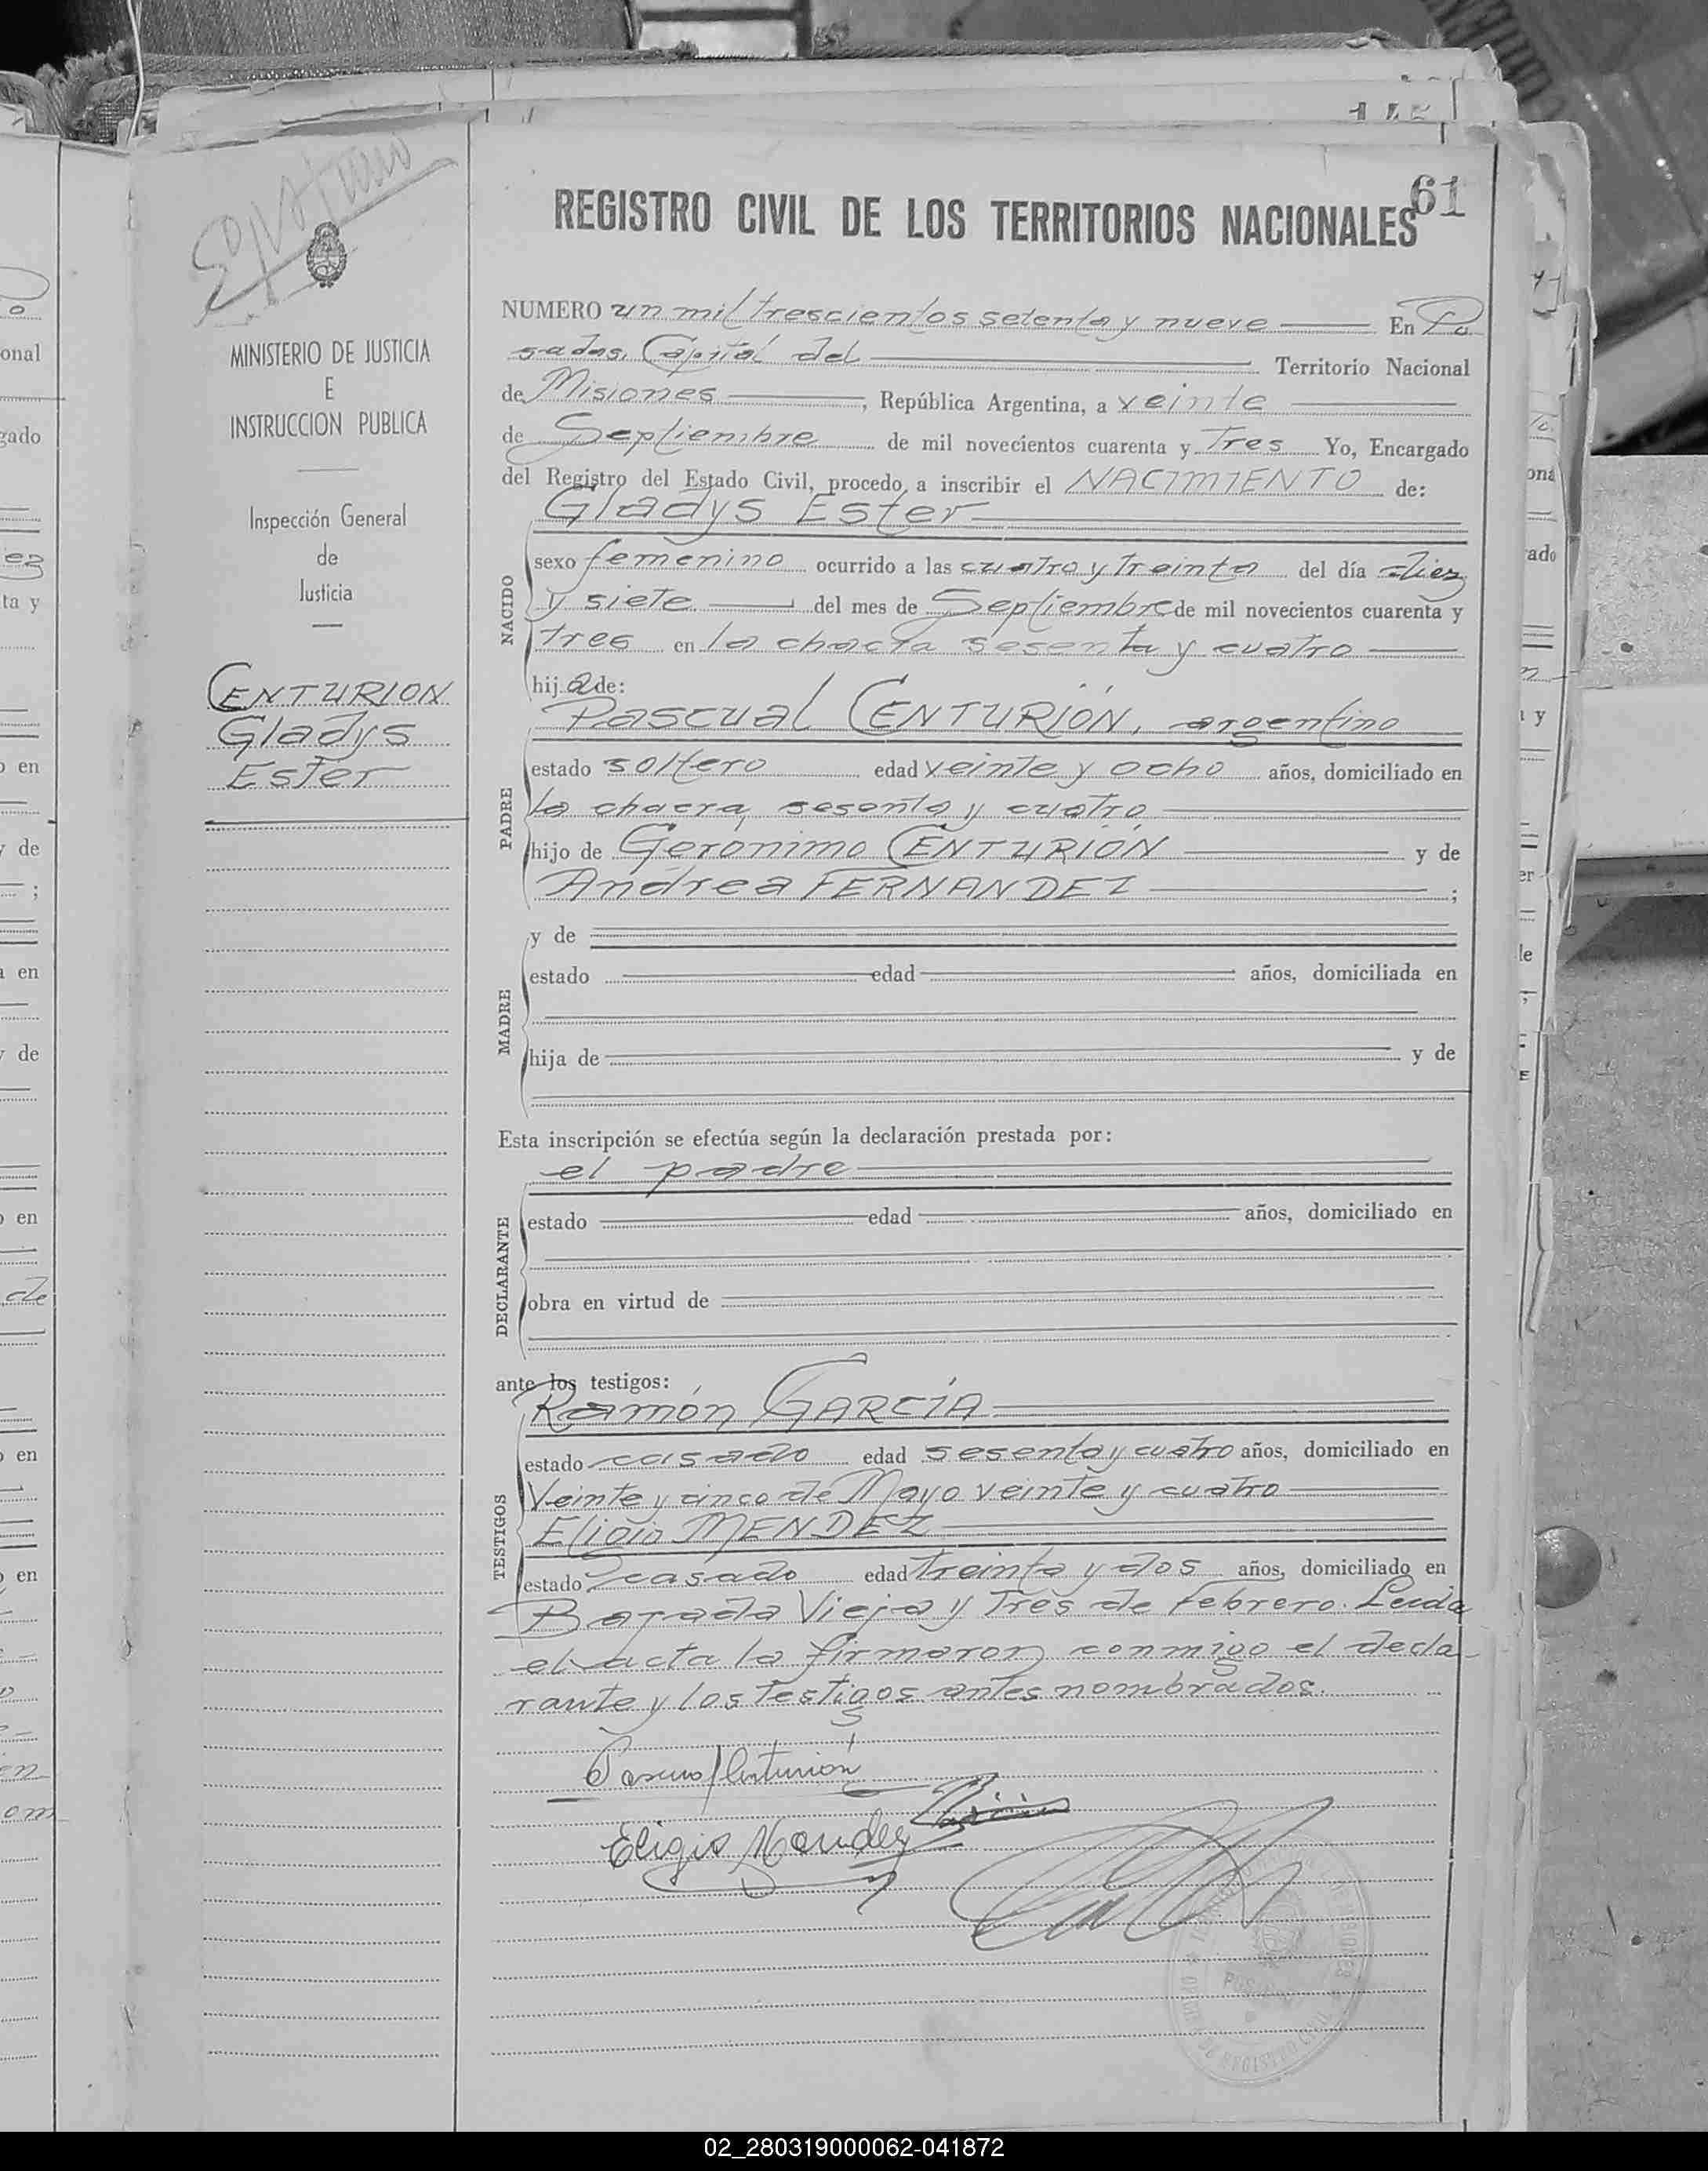 145
61
REGISTRO CIVIL DE LOS TERRITORIOS NACIONALES
MINISTERIO DE JUSTICIA
E
INSTRUCCION PUBLICA
Inspección General
de
Justicia
CENTURION
Gladys
Ester
NUMERO un mil trescientos setenta y nueve En Po
sadas, Capital del Territorio Nacional
de Misiones, República Argentina, a veinte
de Septiembre de mil novecientos cuarenta y Tres Yo, Encargado
del Registro del Estado Civil, procedo a inscribir el NACIMIENTO de:
Gladys Ester
NACIDO
sexo femenino ocurrido a las cuatro y treinta del día diez
y siete del mes de Septiembre de mil novecientos cuarenta y
tres en la chacra sesenta y cuatro
hija de:
Pascual CENTURIÓN, argentino
PADRE
estado soltero edad veinte y ocho años, domiciliado en
la chacra sesenta y cuatro
hijo de Gerónimo CENTURIÓN y de
Andrea FERNANDEZ;
MADRE
y de
estado edad años, domiciliada en
hija de y de
Esta inscripción se efectúa según la declaración prestada por:
el padre
DECLARANTE
estado edad años, domiciliado en
obra en virtud de
ante los testigos:
Ramón GARCÍA
TESTIGOS
estado casado edad sesenta y cuatro años, domiciliado en
Veinte y cinco de Mayo veinte y cuatro
Eligio MENDEZ
estado casado edad treinta y dos años, domiciliado en
Bajada Vieja y Tres de Febrero. Leída
el acta la firmaron conmigo el decla-
rante y los testigos antes nombrados.
Pascual Centurión
Eligio Mendez
POSADAS
02_280319000062-041872